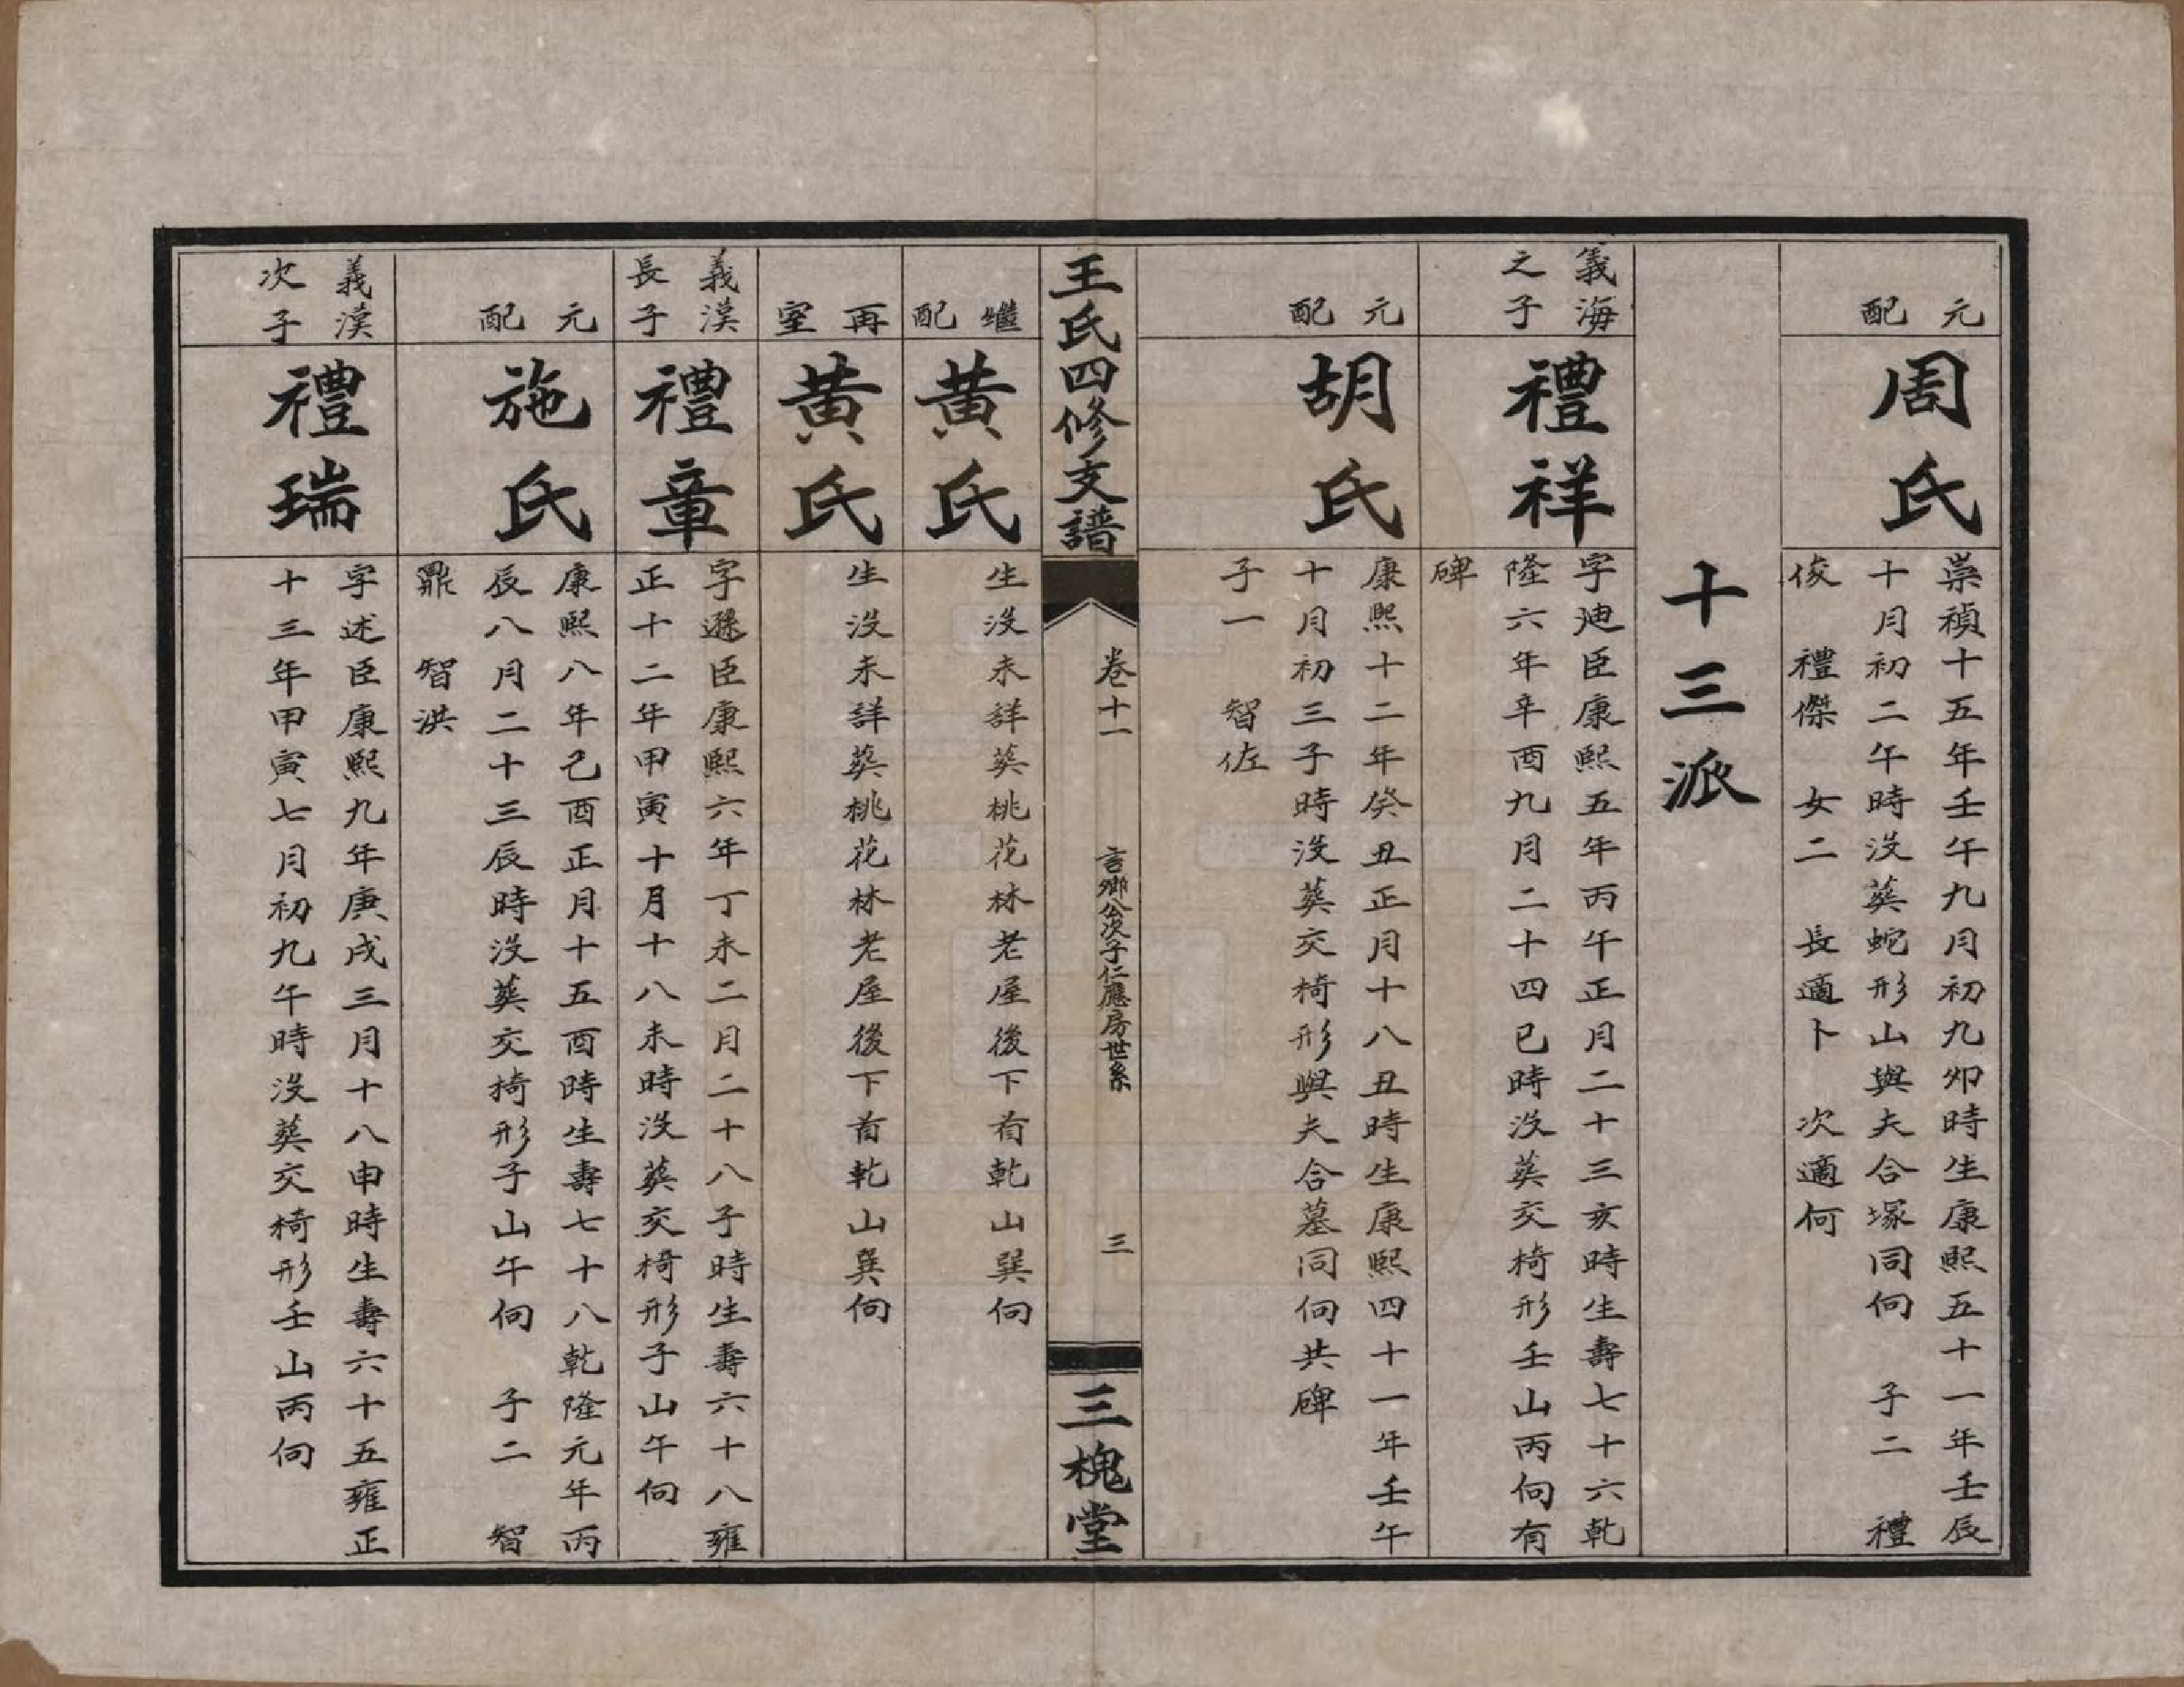 元配
周氏
崇禎十五年壬午九月初九卯時生康熙五十一年壬辰
十月初二午時沒葬蛇形山與夫合塚同向　子二　禮
俊　禮傑　女二　長適卜　次適何
十三派
義海
之子
禮祥
字迪臣康熙五年丙午正月二十三亥時生壽七十六乾
隆六年辛酉九月二十四巳時沒葬交椅形壬山丙向有
碑
元配
胡氏
康熙十二年癸丑正月十八丑時生康熙四十一年壬午
十月初三子時沒葬交椅形與夫合墓同向共碑
子一　智佐
王氏四修支譜
卷十一
言鄉公次子仁應房世系
三
三槐堂
繼配
黃氏
生沒未詳葬桃花林老屋後下首乾山巽向
再室
黃氏
生沒未詳葬桃花林老屋後下首乾山巽向
義漢
長子
禮章
字遜臣康熙六年丁未二月二十八子時生壽六十八雍
正十二年甲寅十月十八未時沒葬交椅形子山午向
元配
施氏
康熙八年己酉正月十五酉時生壽七十八乾隆元年丙
辰八月二十三辰時沒葬交椅形子山午向　子二　智
鼎　智洪
義漢
次子
禮瑞
字述臣康熙九年庚戌三月十八申時生壽六十五雍正
十三年甲寅七月初九午時沒葬交椅形壬山丙向